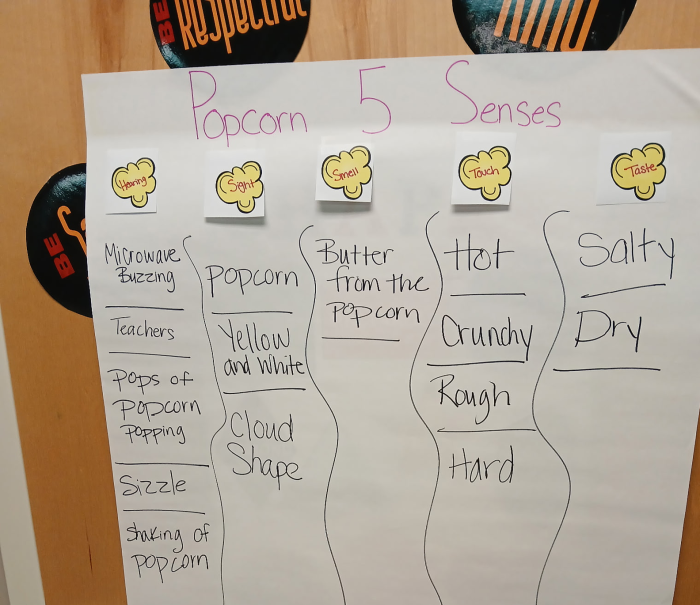 BE
Respectful
Popcorn 5 Senses
Hearing
Sight
Smell
Touch
Taste
BE
Microwave
Buzzing
Teachers
Pops of
popcorn
popping
Sizzle
shaking of
popcorn
popcorn
Yellow
and White
Cloud
Shape
Butter
from the
popcorn
Hot
Crunchy
Rough
Hard
Salty
Dry